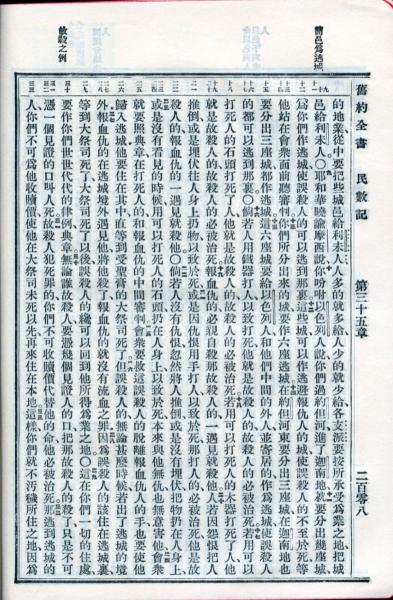 舊約全書 民數記 第三十五章 二百零八
設邑爲逃城
故殺之例
的地業從中要把些城邑給利未人人多的就多給人少的就少給各支派要按所承受爲業之地把城
邑給利未人〇耶和華曉諭摩西說你吩咐以色列人說你們過約但河進了迦南地就要分出幾座城
爲你們作逃城使誤殺人的可以逃到那裏這些城可以作逃避報仇人的城使誤殺人的不至於死等
他站在會衆面前聽審判你們所分出來的城要作六座逃城在約但河東要分出三座城在迦南地也
要分出三座城都作逃城這六座城要給以色列人和他們中間的外人並寄居的作爲逃城使誤殺人
的都可以逃到那裏〇倘若人用鐵器打人以致打死他就是故殺人的故殺人的必被治死若用可以
打死人的石頭打死了人他就是故殺人的故殺人的必被治死若用可以打死人的木器打死了人他
就是故殺人的故殺人的必被治死報血仇的必親自殺那故殺人的一遇見就殺他人若因怨恨把人
推倒或是埋伏往人身上扔物以致於死或是因仇恨用手打人以致於死那打人的必被治死他是故
殺人的報血仇的一遇見就殺他〇倘若人沒有仇恨忽然將人推倒或是沒有埋伏把物扔在人身上
或是沒有看見的時候用可以打死人的石頭扔在人身上以致於死本來與他無仇也無意害他會衆
就要照典章在打死人的和報血仇的中間審判會衆要救這誤殺人的脫離報血仇人的手也要使他
歸入逃城他要住在其中直等到受聖膏的大祭司死了但誤殺人的無論甚麼時候若出了逃城的境
外報血仇的在逃城境外遇見他將他殺了報血仇的就沒有流血之罪因爲誤殺人的該住在逃城裏
等到大祭司死了大祭司死了以後誤殺人的纔可以回到他所得爲業之地〇這在你們一切的住處
要作你們世世代代的律例典章無論誰故殺人要憑幾個見證人的口把那故殺人的殺了只是不可
憑一個見證的口叫人死故殺人犯死罪的你們不可收贖價代替他的命他必被治死那逃到逃城的
人你們不可爲他收贖價使他在大祭司未死以先再來住在本地這樣你們就不污穢所住之地因爲